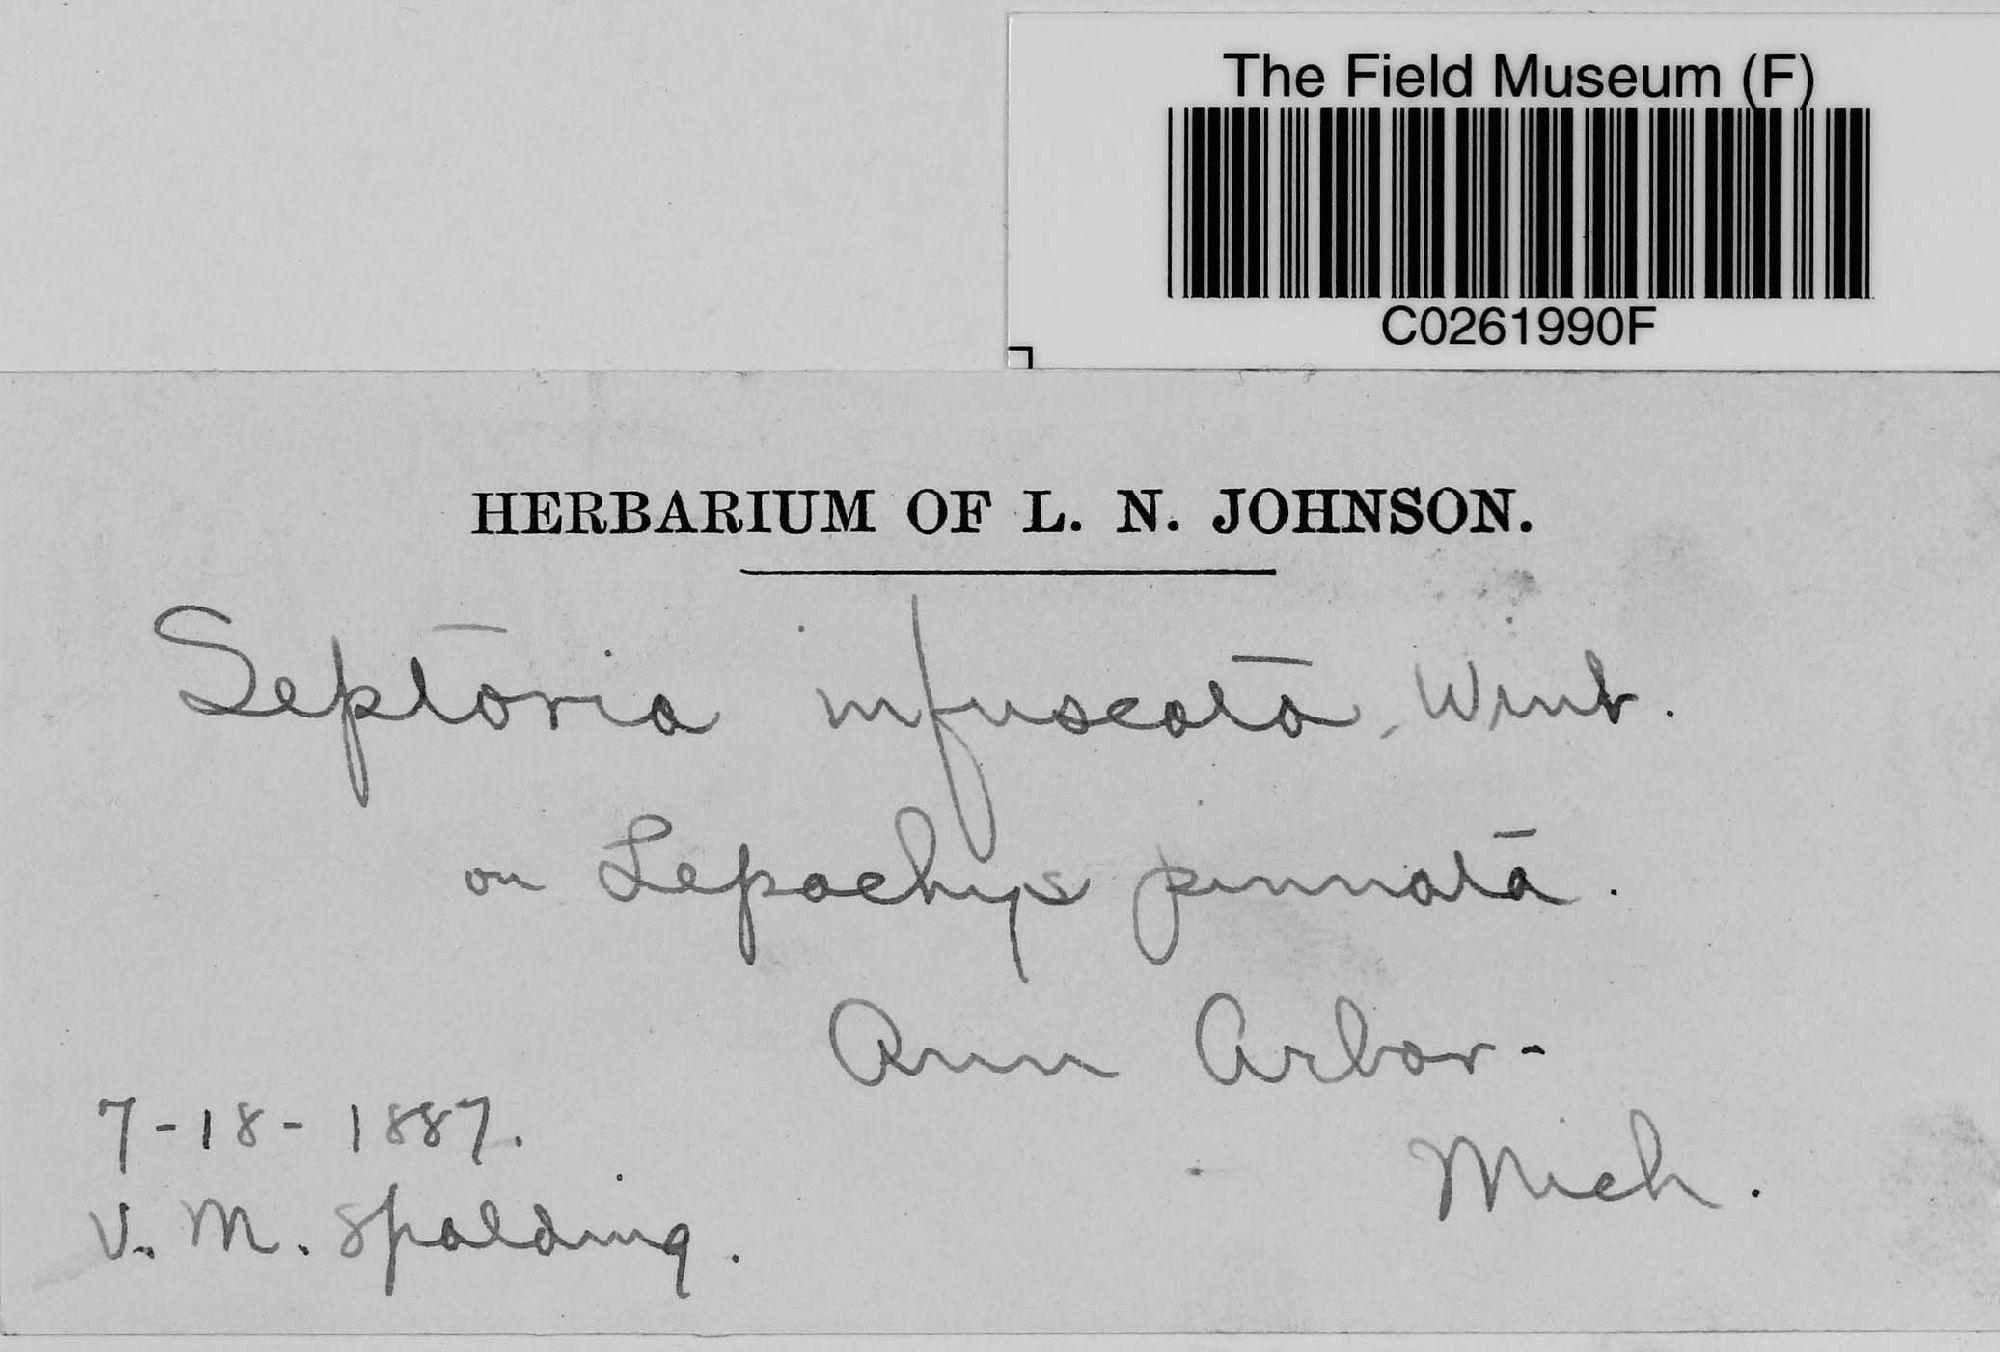 The Field Museum (F)
C0261990F
HERBARIUM OF L. N. JOHNSON.
Septoria infuscata, Wint.
on Lepachys pinnata.
Ann Arbor -
Mich.
7-18-1887.
V. M. Spalding.